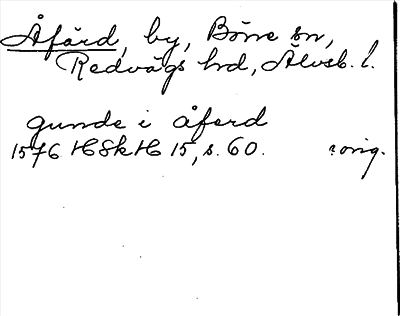 Åfärd, by, Börre sn,
Redvägs hd, Älvsb. l.
gunde i åferd
1576 HSkH 15, s. 60. orig.